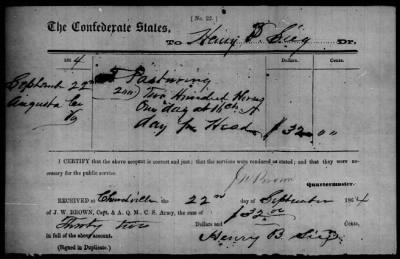 [No. 22.]
The Confederate States,
To Henry B Sieg Dr.
1864 Dollars. Cents.
September 22nd Pasturing
Augusta Co (200) Two Hundred Horses
Va One day at 16 cts
day per Head $32 00
I CERTIFY that the above account is correct and just; that the services were rendered as stated; and that they were neces-
cessary for the public service.
J W Brown
Quartermaster.
RECEIVED at Churchville the 22nd of September 1864
of J. W. BROWN, Capt. & A. Q. M., C. S. Army, the sum of $32.00
Thirty two Dollars and Cents,
in full of the above account.
(Signed in Duplicate.) Henry B. Sieg